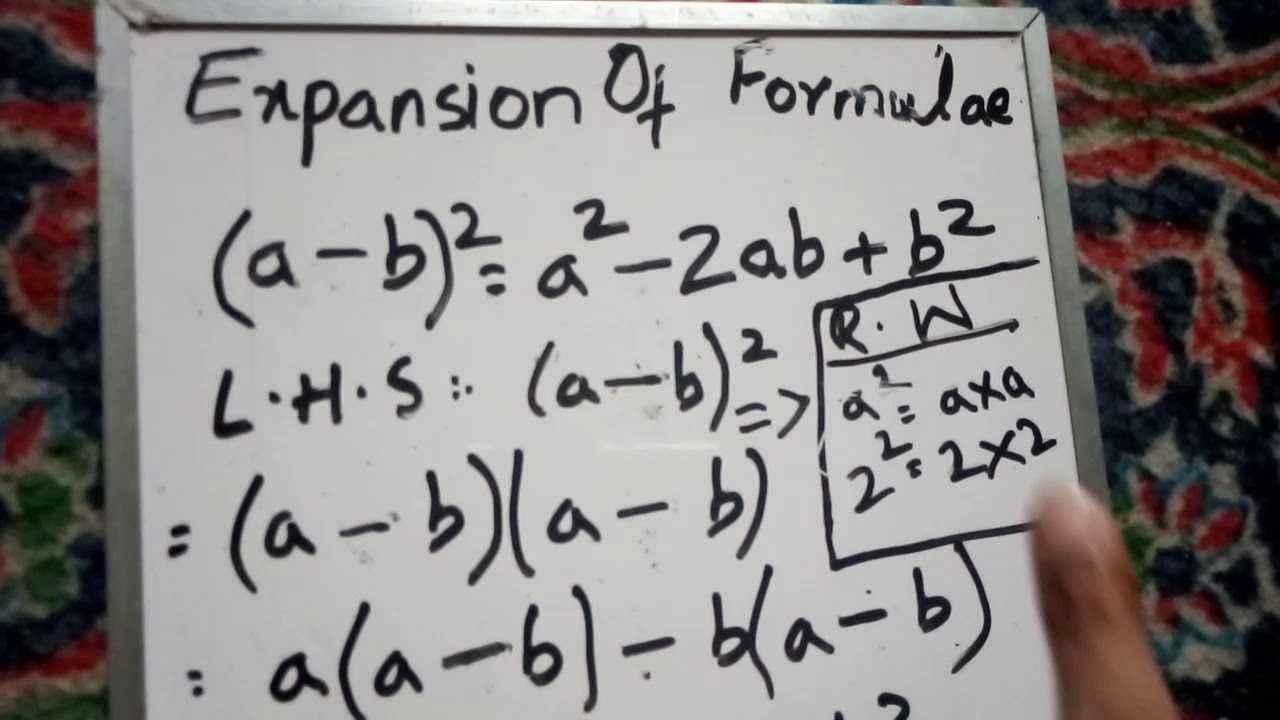 Expansion Of Formulae
(a - b)² = a² - 2ab + b²
L.H.S : (a - b)² =>
R. W
a² = a×a
2² = 2×2
= (a - b)(a - b)
= a(a - b) - b(a - b)